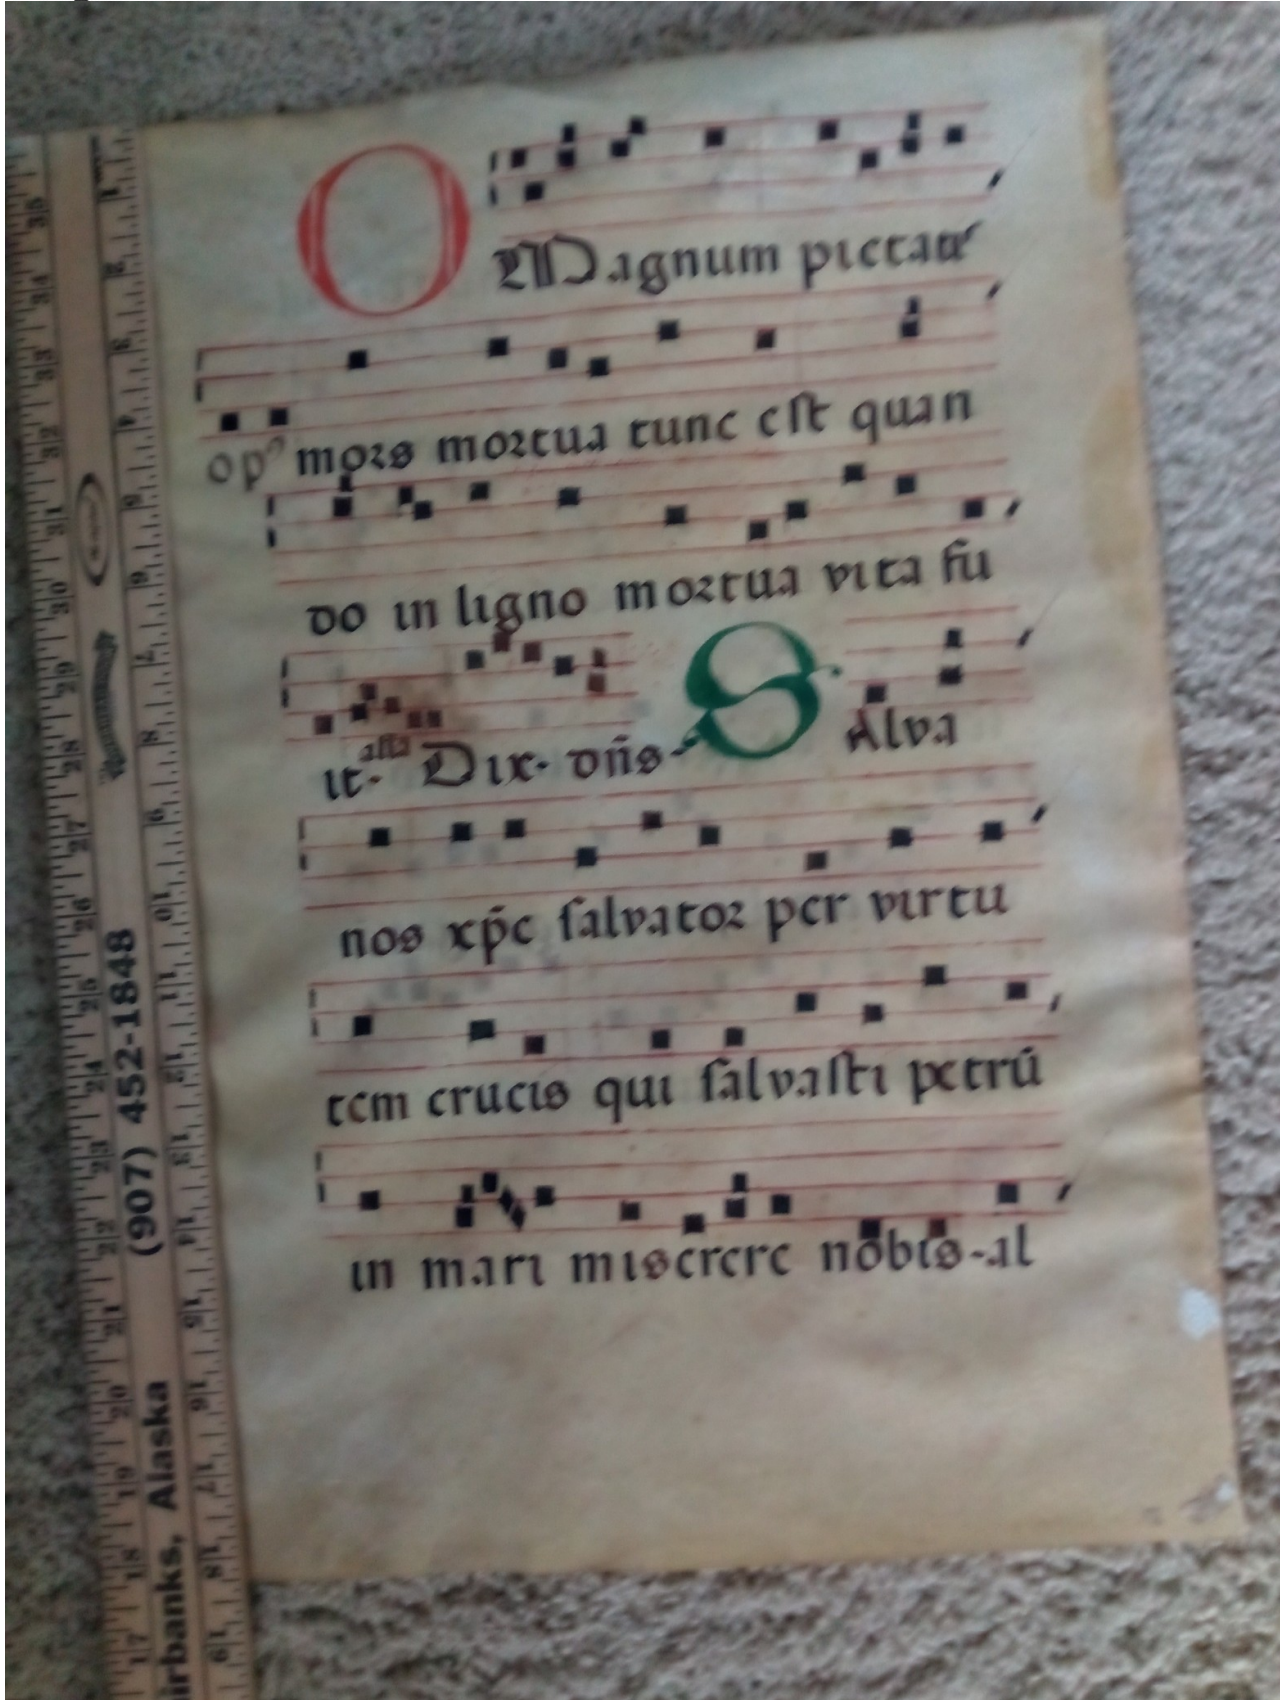 O Magnum pietatꝭ
opꝰ mors mortua tunc est quan
do in ligno mortua vita fu
it. a̅lla Dix. dn̅s S Alva
nos xp̅e salvator per virtu
tem crucis qui salvasti petrū
in mari miserere nobis-al
(907) 452-1848
irbanks, Alaska